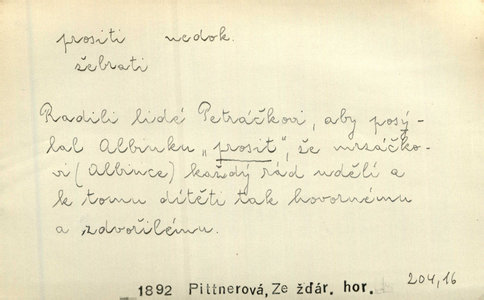 prositi nedok.
žebrati
Radili lidé Petráčkovi, aby posý-
lal Albinku „prosit“, že mrzáčko-
vi (Albince) každý rád udělí a
k tomu dítěti tak hovornému
a zdvořilému.
204,16
1892 Pittnerová, Ze žďár. hor.